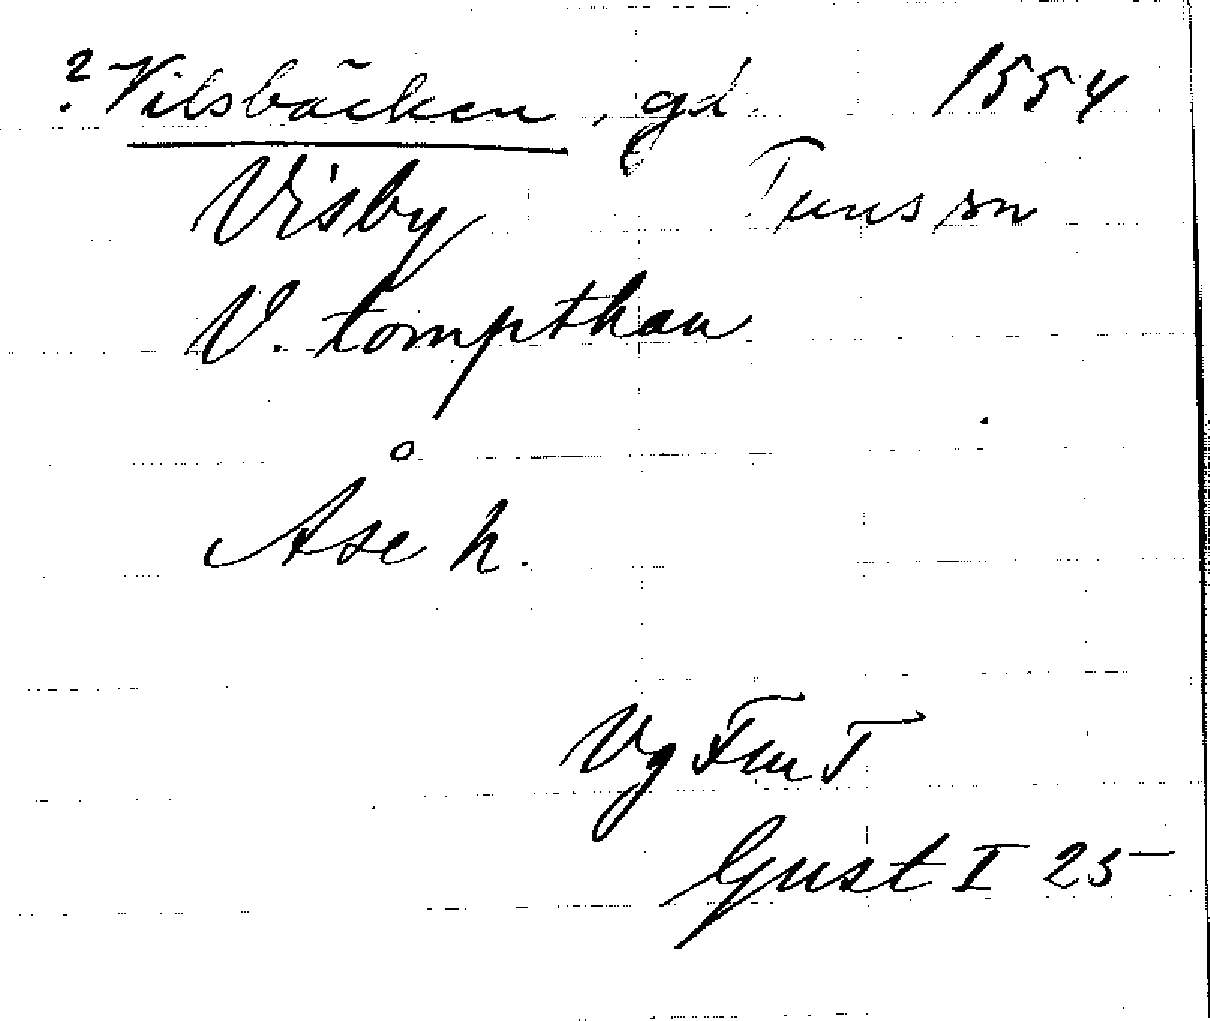 ? Vilsbäcken, gd. 1554
Visby Tuns sn
V. tompthan
Åse h.
Vg Fm T
Gust I 25